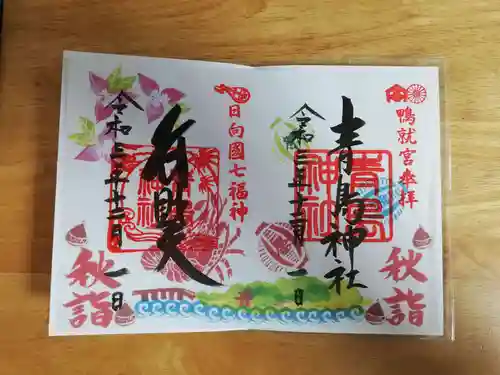 鴨就宮參拝
青島神社
令和三年十二月一日
秋詣
青島神社
日向國七福神
弁財天
令和三年十二月一日
秋詣